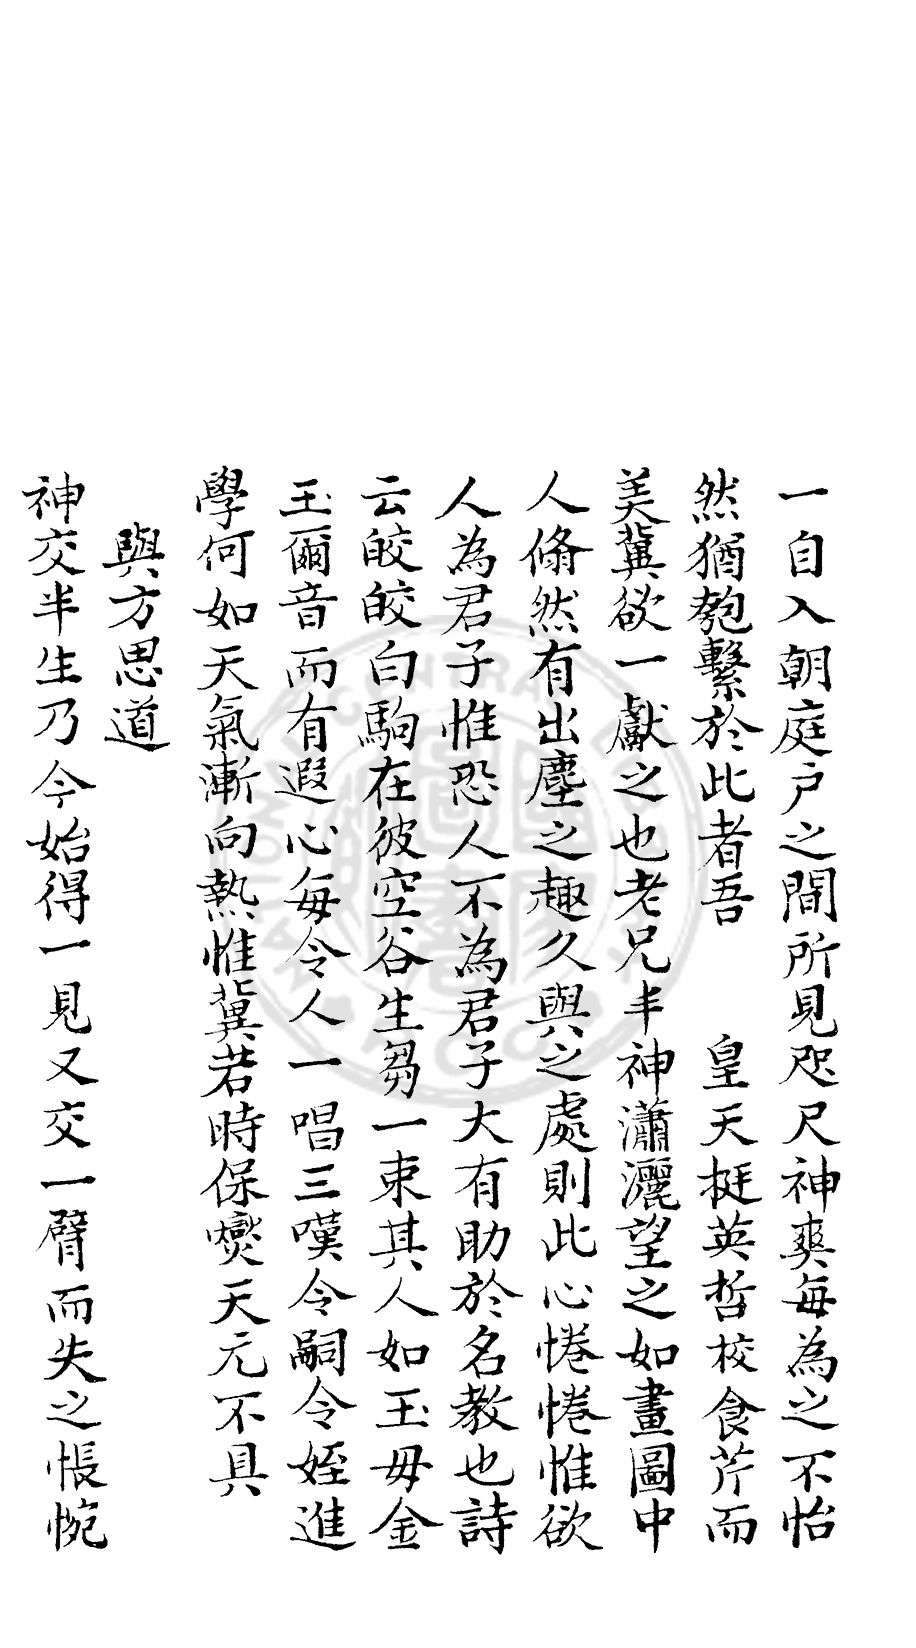 一自入朝庭戶之間所見咫尺神爽每為之不怡
然猶匏繫於此者吾　皇天挺英哲校食芹而
美冀欲一獻之也老兄丰神瀟灑望之如畫圖中
人翛然有出塵之趣久與之處則此心惓惓惟欲
人為君子惟恐人不為君子大有助於名教也詩
云皎皎白駒在彼空谷生芻一束其人如玉毋金
玉爾音而有遐心每令人一唱三嘆令嗣令姪進
學何如天氣漸向熱惟冀若時保爕天元不具
與方思道
神交半生乃今始得一見又交一臂而失之悵惋